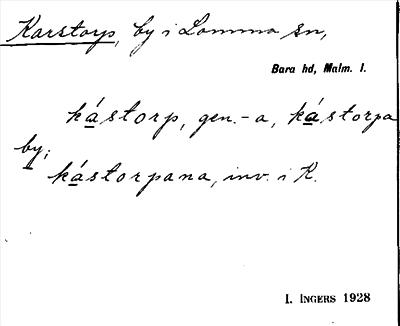 Karstorp, by i Lomma sn,
Bara hd, Malm. l.
ká̲storp, gen. -a, ká̲storpa
by;
ká̲storpana, inv. i K.
I. INGERS 1928